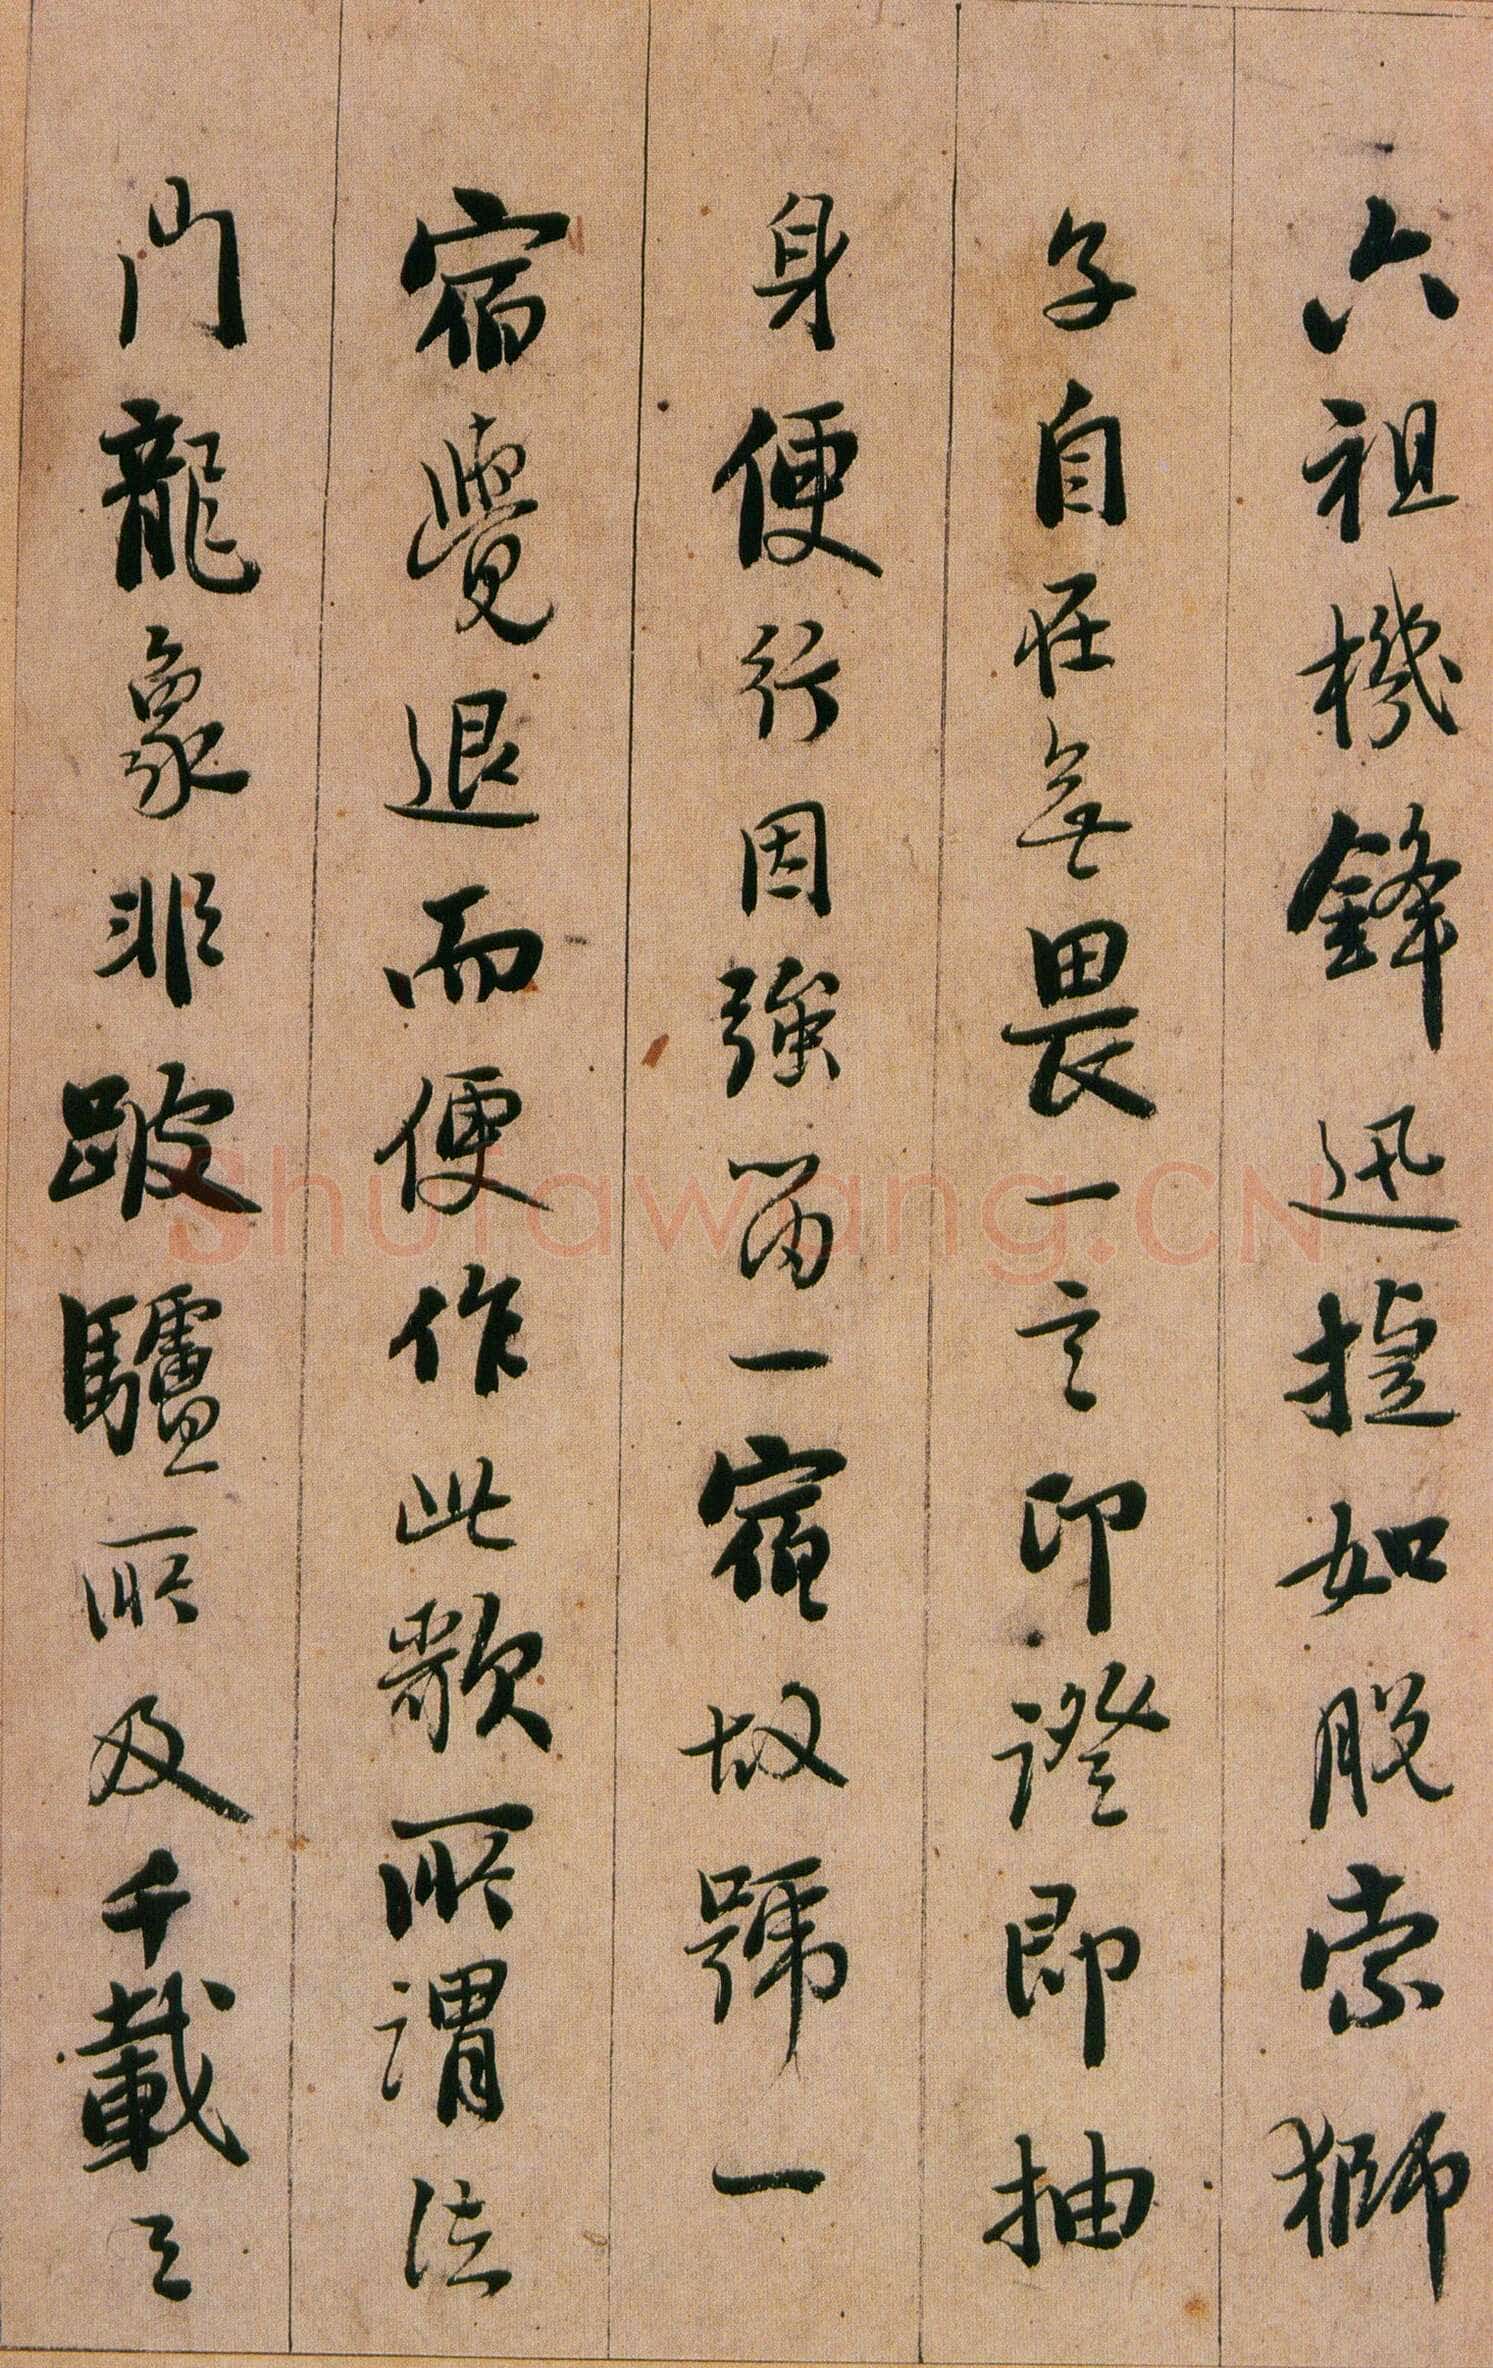 六祖機鋒迅捷如脫索獅
子自在無畏一言印證即抽
身便行因強留一宿故號一
宿覺退而便作此歌所謂法
門龍象非跛驢所及千載之
ShuFawang.CN